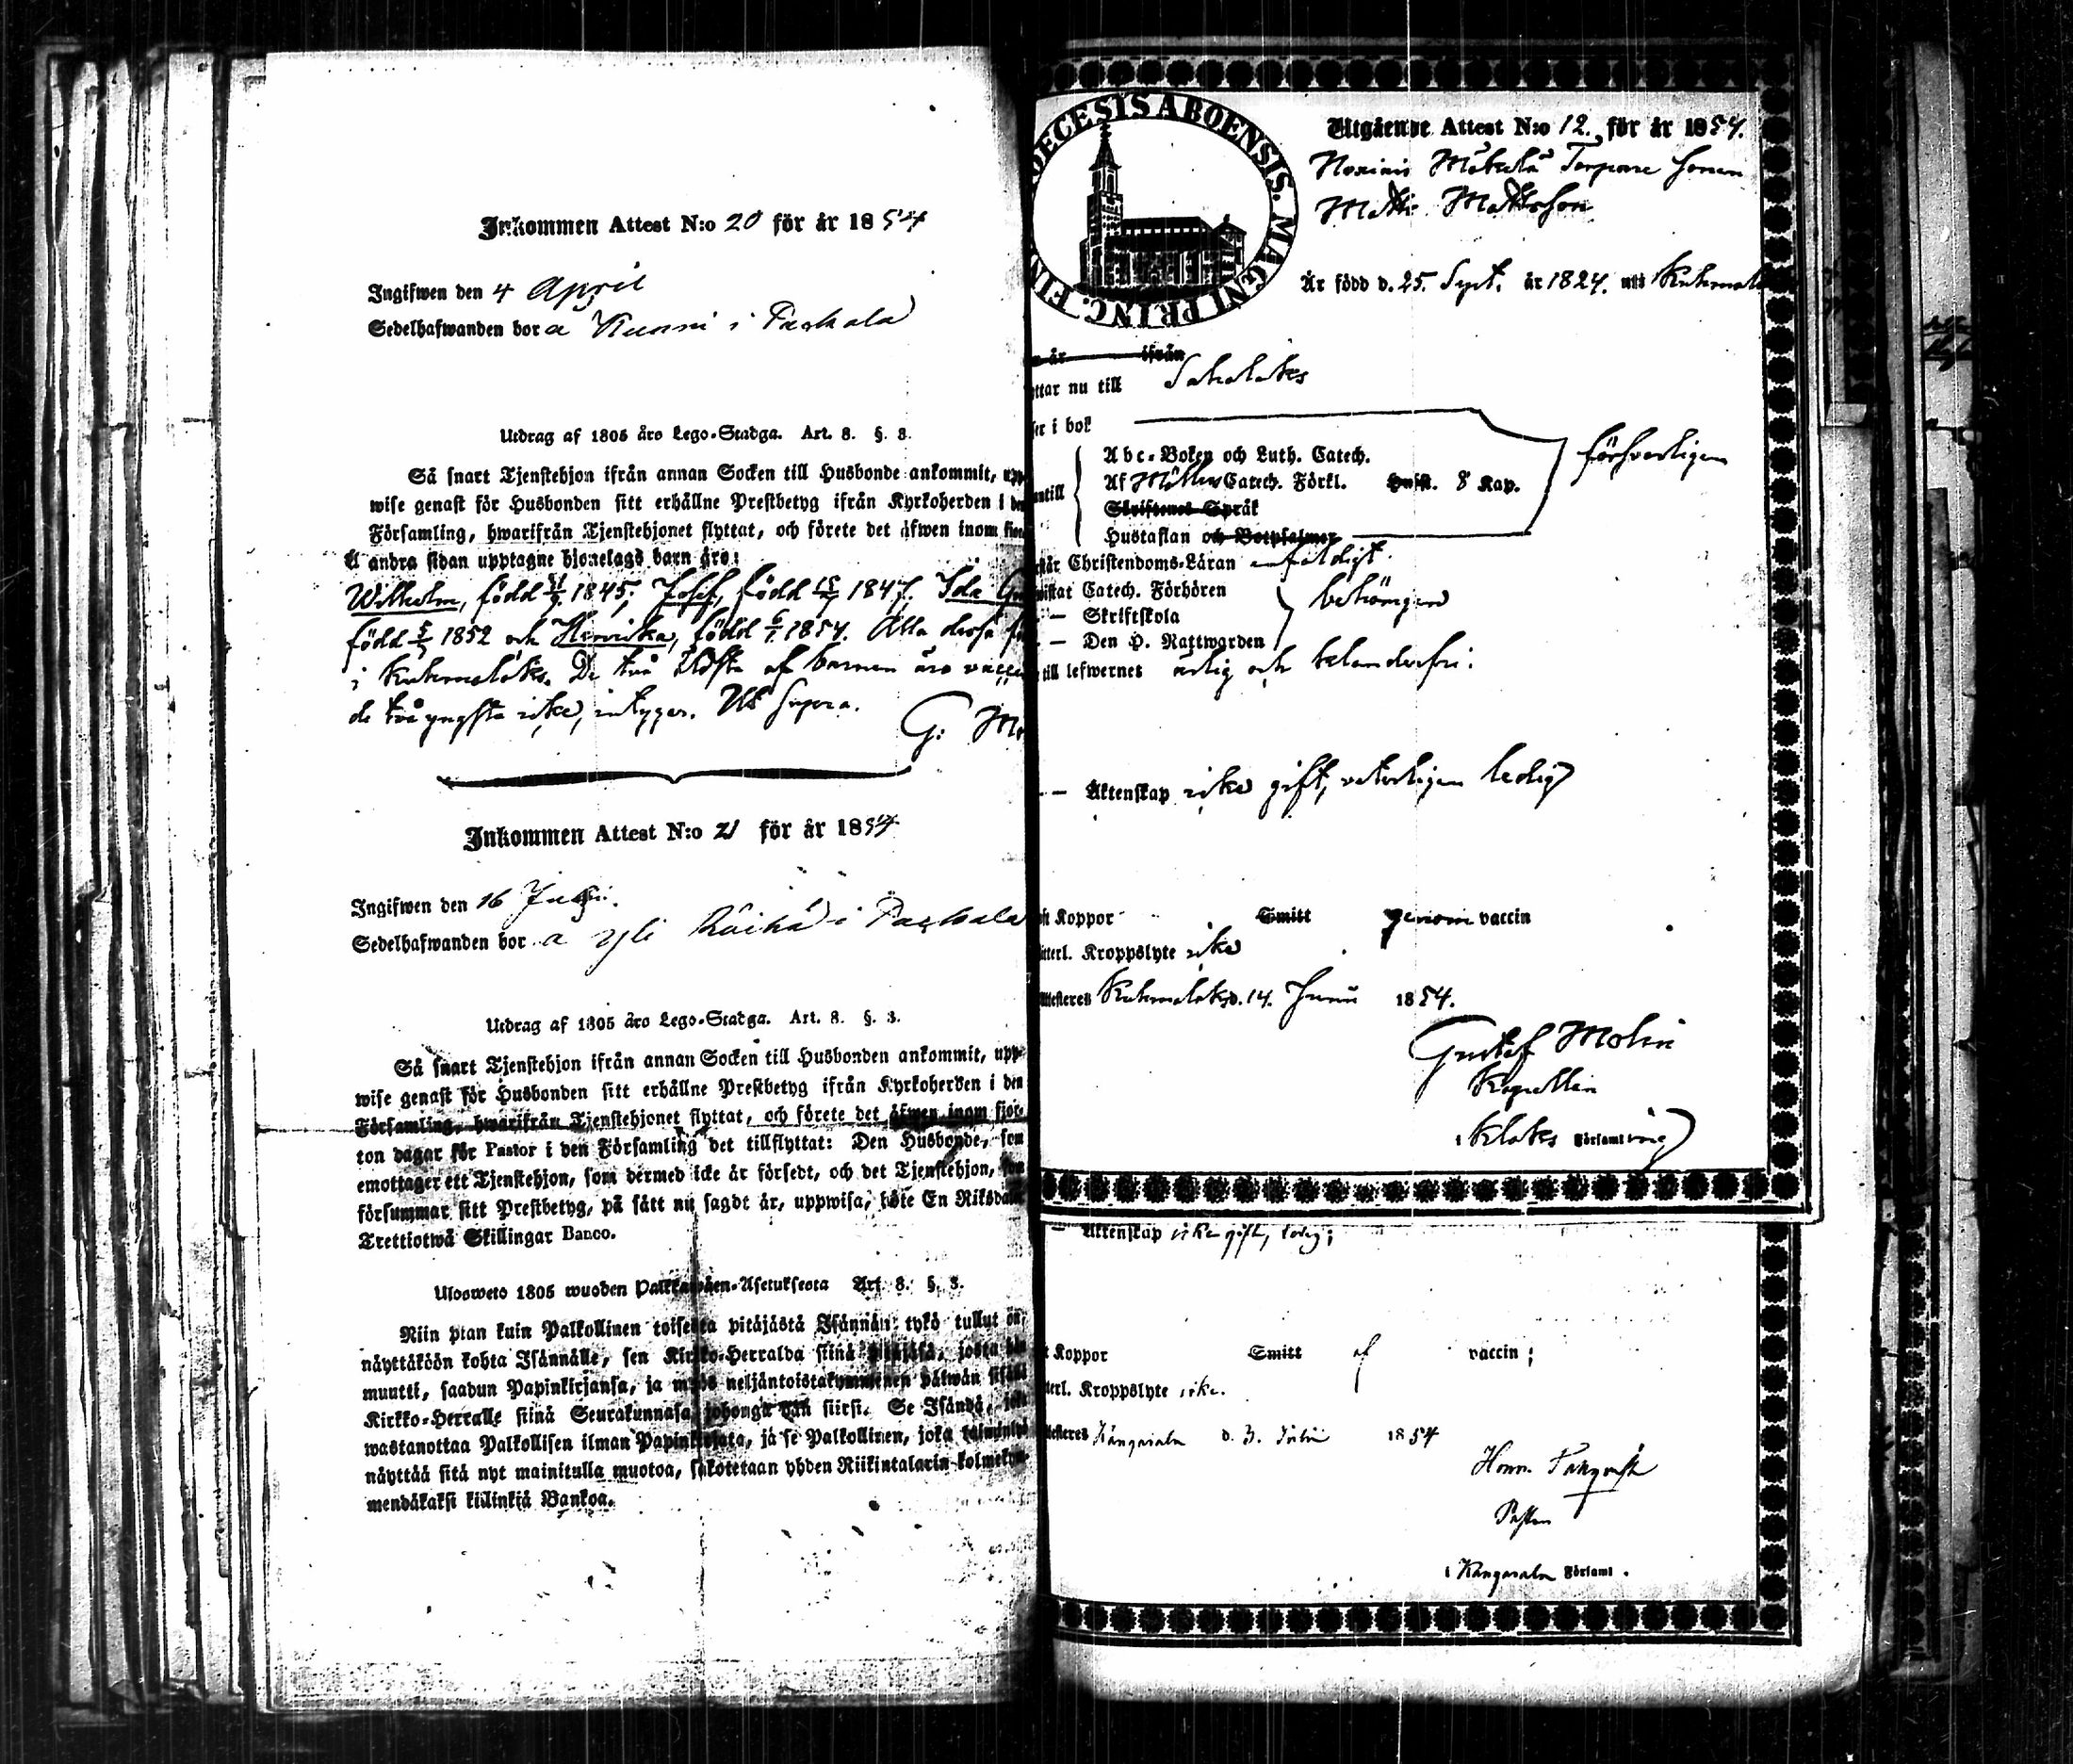 Inkommen Attest N:o 20 för år 1854
Ingifwen den 4 April
Sedelhafwanden bor å Kunni i Paskala
Utdrag af 1805 års Lego-Stadga. Art. 8. §. 3.
Så snart Tjenstehjon ifrån annan Socken till Husbonde ankommit, upp-
wise genast för Husbonden sitt erhållne Prestbetyg ifrån Kyrkoherden i den
Församling, hwarifrån Tjenstehjonet flyttat, och förete det äfwen inom
Å andra sidan upptagne hjonelags barn äro:
Wilhelm, född 1845; Josef, född 1847. Ida
född 1852 och Henrika, född 6/1 1854. Alla dessa
i Kuhmalaks. De två äldsta af barnen äro
de två yngsta icke, intygar. Ut Supra.
G: Mo
Inkommen Attest N:o 21 för år 1854
Ingifwen den 16
Sedelhafwanden bor å Yli Röihä i Paskala
Utdrag af 1805 års Lego-Stadga. Art. 8. §. 3.
Så snart Tjenstehjon ifrån annan Socken till Husbonden ankommit, upp-
wise genast för Husbonden sitt erhållne Prestbetyg ifrån Kyrkoherden i den
Församling, hwarifrån Tjenstehjonet flyttat, och förete det äfwen inom fjor-
ton dagar för Pastor i den Församling det tillflyttat: Den Husbonde, som
emottager ett Tjenstehjon, som dermed icke är försedt, och det Tjenstehjon, som
försummar sitt Prestbetyg, på sätt nu sagdt är, uppwisa, böte En Riksdaler
Trettiotwå Skillingar Banco.
Ulosweto 1805 wuoden Palkkawäen-Asetuksesta Art. 8. §. 3.
Niin pian kuin Palkollinen toisesta pitäjästä Isännän tykö tullut on,
näyttäköön kohta Isännälle, sen Kirkko-Herralda siinä pitäjäsä, josta hän
muutti, saadun Papinkirjansa, ja myös neljäntoistakymmenen päiwän sisällä
Kirkko-Herralle siinä Seurakunnasa johonga hän siirsi. Se Isändä, joka
wastanottaa Palkollisen ilman Papinkirjata, ja se Palkollinen, joka
näyttää sitä nyt mainitulla muotoa, sakotetaan yhden Riikintalarin kolmekym-
mendäkaksi killinkiä Bankoa.
OECESIS ABOENSIS. MAGNI PRINC. FIN
Utgående Attest N:o 12. för år 1854.
Mäkelä Torpare sonen
Matts Mattsson
Är född d. 25. Sept. år 1824. uti
år ifrån
ttar nu till Sahalaks
i bok
Abc-Boken och Luth. Catech.
Af Möllers Catech. Förkl. Husk. 8 Kap.
försvarligen
Skriftenes Språk
Hustaflan och Botpsalmer
Christendoms-Läran enfaldigt.
wistat Catech. Förhören
— Skriftskola
behörigen
— Den H. Nattwarden
till lefwernet ärlig och klanderfri.
— Äktenskap icke gift, veterligen ledig
Koppor Smitt genom vaccin
tterl. Kroppslyte icke
Attesteres Kuhmalaks d. 14. Junii 1854.
Gustaf Molin
Kapellan
i Klaks Församling
— Äktenskap icke gift, ledig;
Koppor Smitt af vaccin;
terl. Kroppslyte icke.
testeres Kangasala d. 3. 1854
Pastor
i Kangasala Församl.